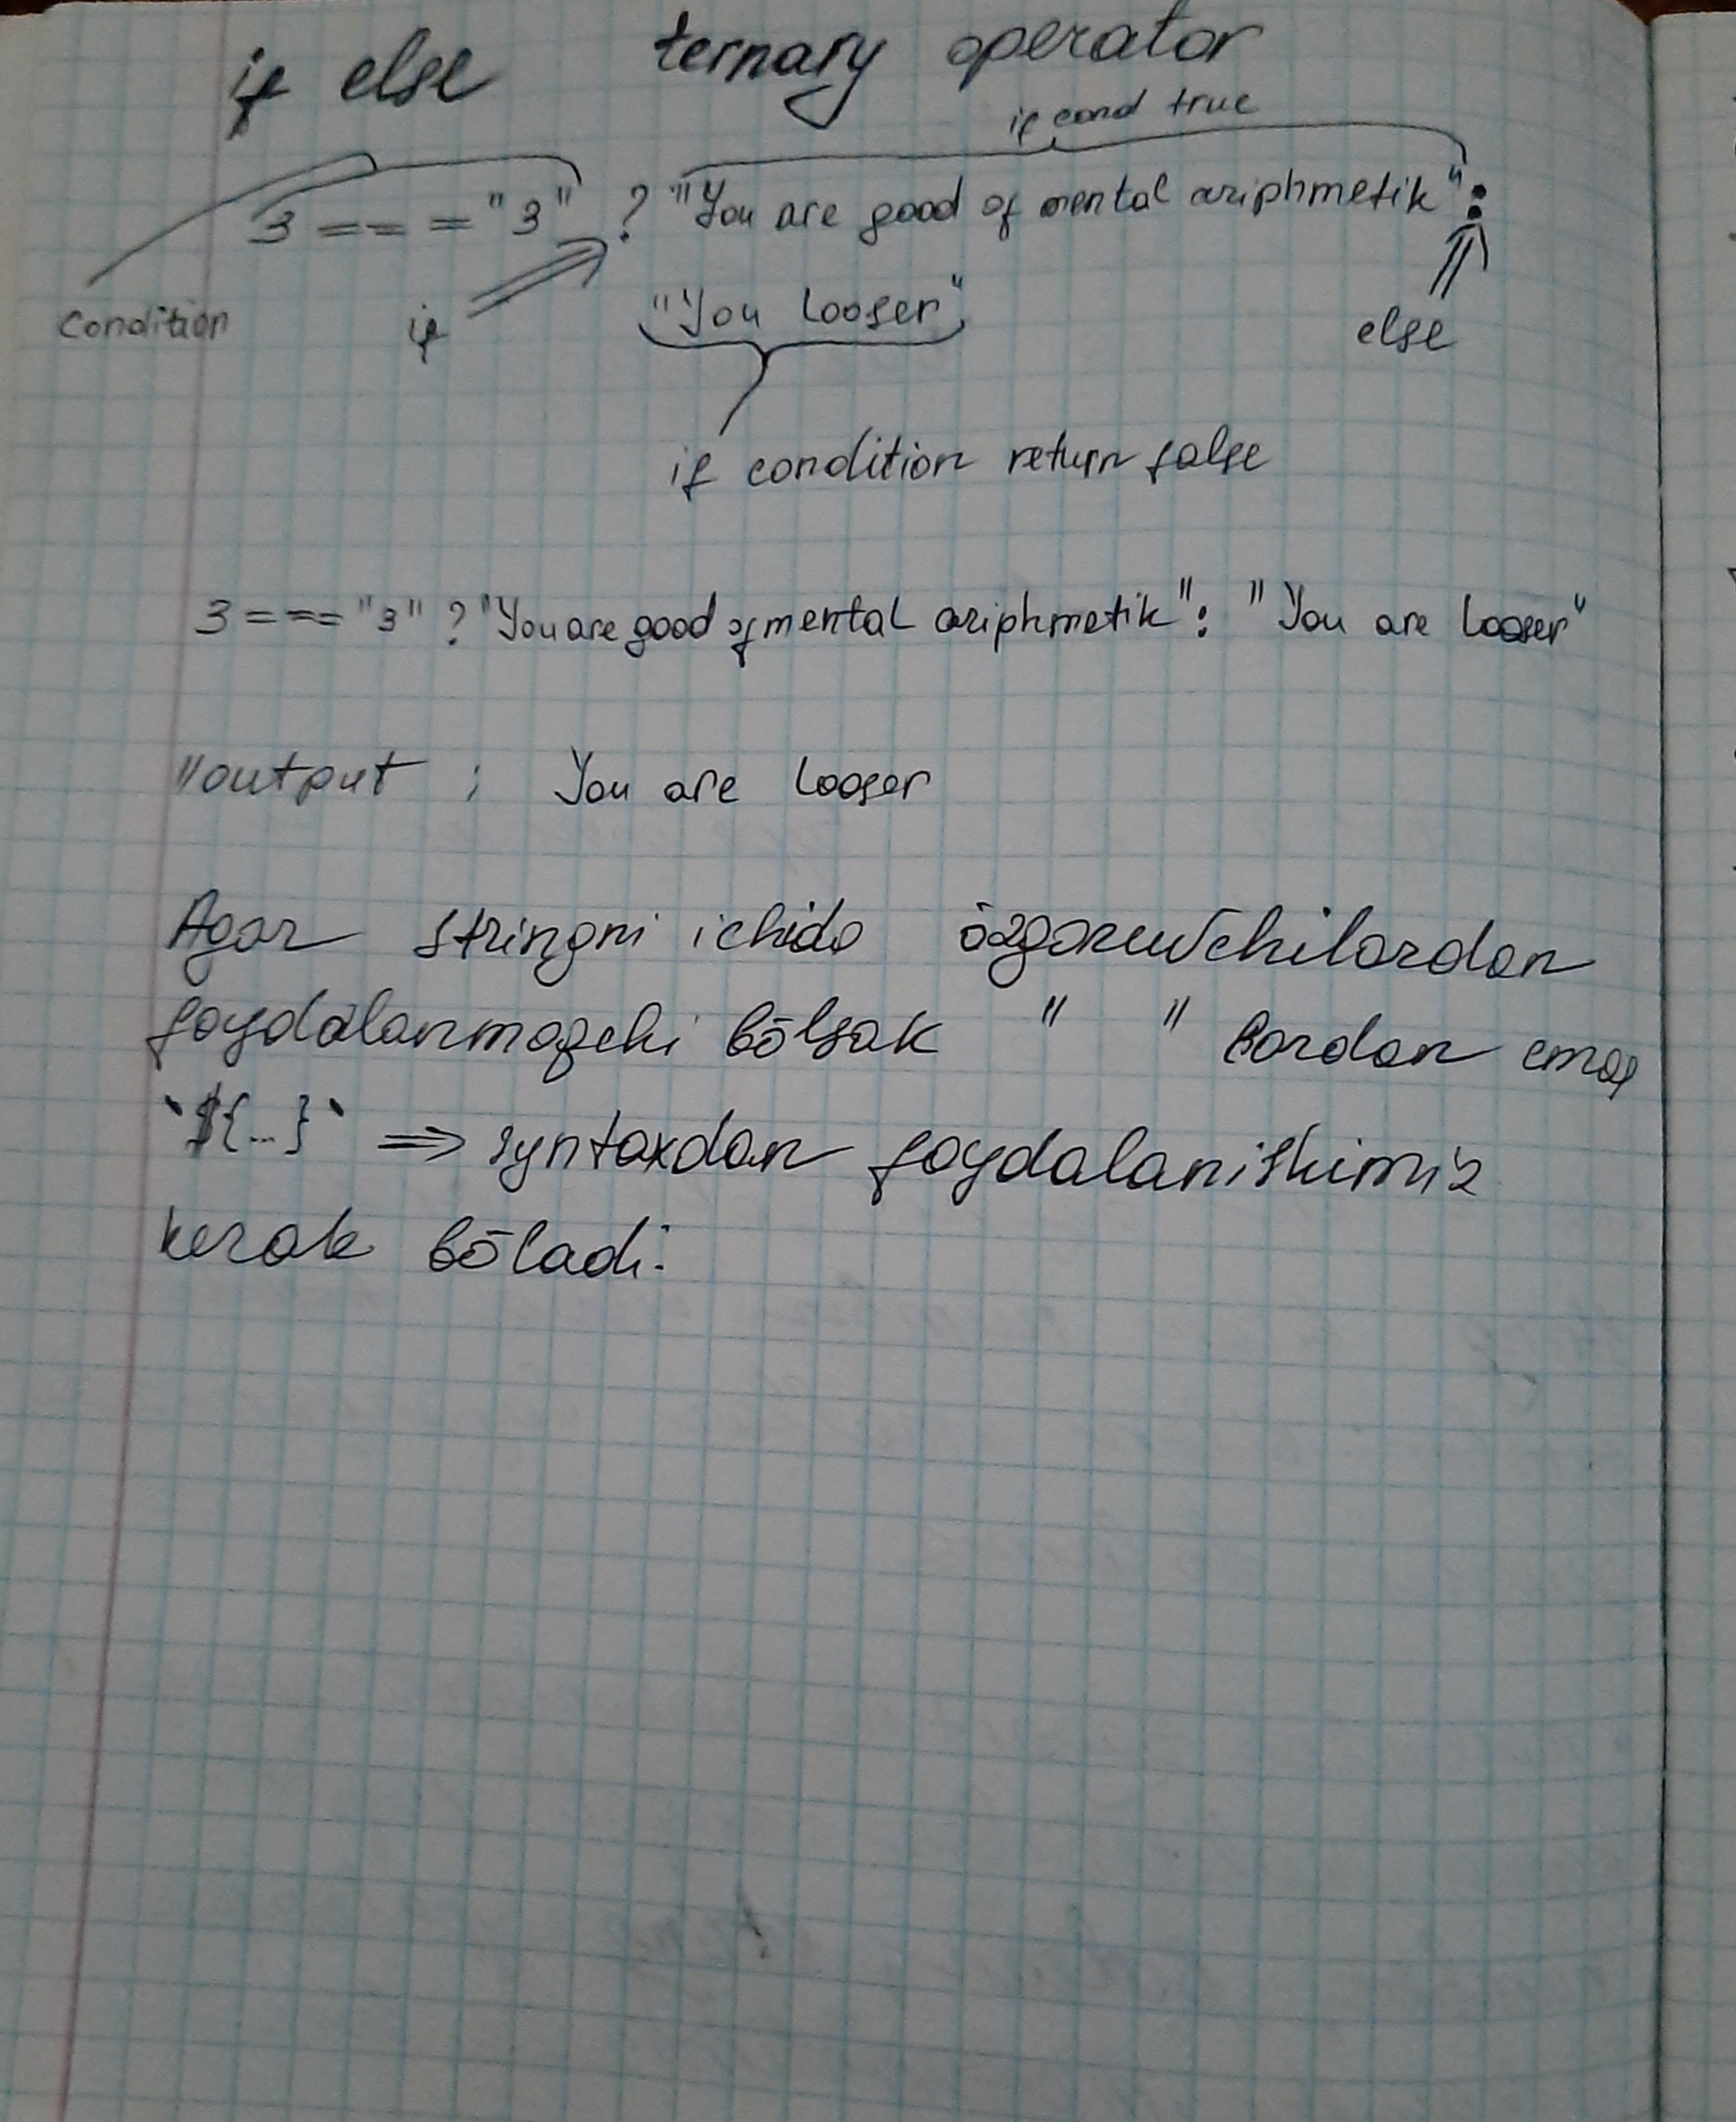 if else ternary operator
if cond true
3 === "3" ? "You are good of mental ariphmetik" :
Condition if "You looser" else
if condition return false
3 === "3" ? "You are good of mental ariphmetik" : "You are looser"
"output : You are looser
Agar stringni ichida ōzgaruvchilardan
foydalanmoqchi bōlsak " " lardan emas
`${...}` => syntaxdan foydalanishimiz
kerak bōladi.